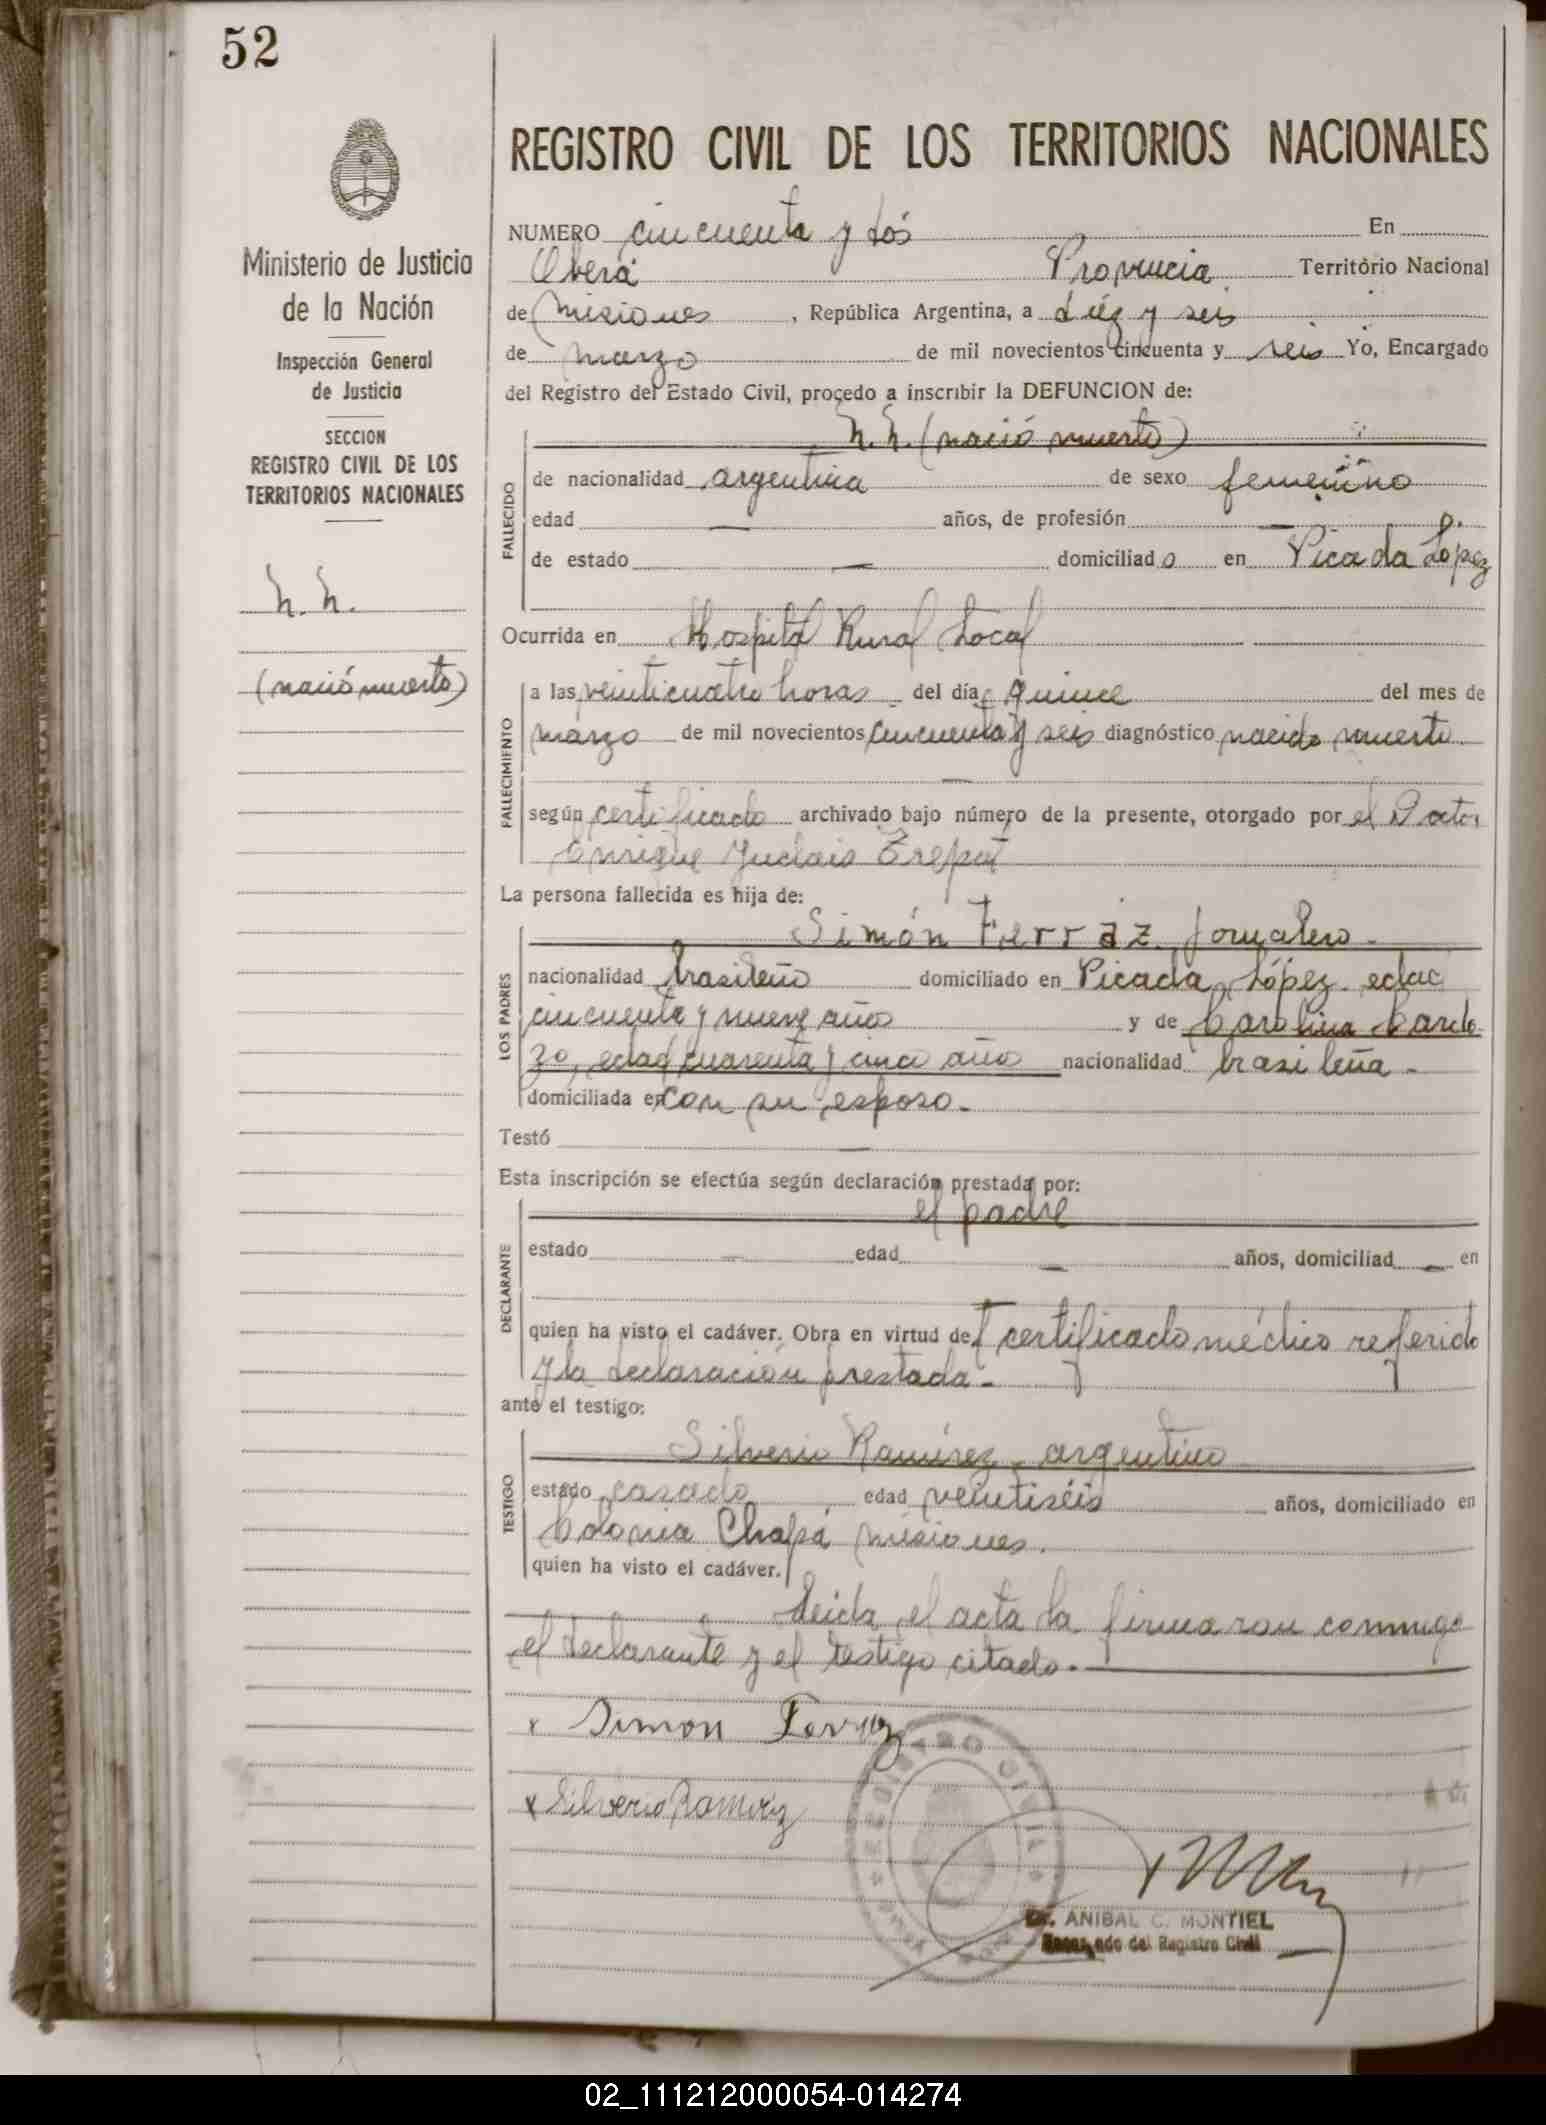 52
Ministerio de Justicia
de la Nación
Inspección General
de Justicia
SECCION
REGISTRO CIVIL DE LOS
TERRITORIOS NACIONALES
N. N.
(nació muerto)
REGISTRO CIVIL DE LOS TERRITORIOS NACIONALES
NUMERO cincuenta y dos En
Oberá Provincia Territorio Nacional
de Misiones, República Argentina, a diez y seis
de marzo de mil novecientos cincuenta y seis Yo, Encargado
del Registro del Estado Civil, procedo a inscribir la DEFUNCION de:
N. N. (nació muerto)
FALLECIDO
de nacionalidad argentina de sexo femenino
edad — años, de profesión —
de estado — domiciliado en Picada López
Ocurrida en Hospital Rural Local
FALLECIMIENTO
a las veinticuatro horas del día quince del mes de
marzo de mil novecientos cincuenta y seis diagnóstico nacido muerto
—
según certificado archivado bajo número de la presente, otorgado por el Doctor
Enrique Trepat
La persona fallecida es hija de:
LOS PADRES
Simón Ferráz, jornalero -
nacionalidad brasileño domiciliado en Picada López edad
cincuenta y nueve año y de Carolina Cardo
zo, edad cuarenta y cinco año nacionalidad brasileña -
domiciliada en con su esposo -
Testó —
Esta inscripción se efectúa según declaración prestada por:
el padre
DECLARANTE
estado — edad — años, domiciliad — en
quien ha visto el cadáver. Obra en virtud del certificado médico referido
y la declaración prestada -
ante el testigo:
TESTIGO
Silverio Ramírez, argentino
estado casado edad veintiséis años, domiciliado en
Colonia Chapá Misiones.
quien ha visto el cadáver.
Leida el acta la firmaron conmigo
el declarante y el testigo citado. —
x Simon Ferraz
x Silverio Ramirez
REGISTRO CIVIL
Dr. ANIBAL C. MONTIEL
Encargado del Registro Civil
02_111212000054-014274